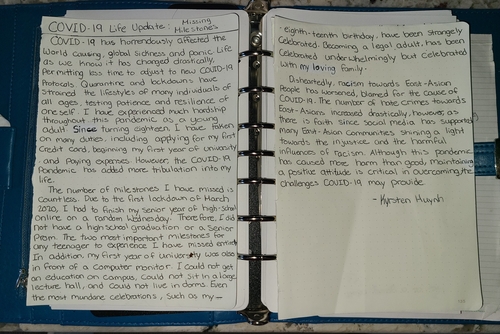 COVID-19 Life Update: Missing Milestones
COVID-19 has horrendously affected the
World causing global sickness and panic. Life
as we know it has changed drastically,
Permitting less time to adjust to new COVID-19
Protocols. Quarantine and lockdowns have
strained the lifestyles of many individuals of
all ages, testing patience and resilience of
one self. I have experienced much hardship
throughout this pandemic as a young
adult. Since turning eighteen, I have taken
on many duties, including applying for my first
Credit Card, beginning my first year of University
and Paying expenses. However, the COVID-19
Pandemic has added more tribulation into my
life.
The number of milestones I have missed is
countless. Due to the first lockdown of March
2020, I had to finish my senior year of high-school
online on a random Wednesday. Therefore, I did
not have a high school graduation or a Senior
Prom. The two most important milestones for
any teenager to experience I have missed entirely
In addition, my first year of University was also
in front of a computer monitor. I could not get
an education on campus, could not sit in a large
lecture hall, and could not live in dorms. Even
the most mundane celebrations, such as my
eighth-teenth birthday, have been strangely
celebrated. Becoming a legal adult, has been
celebrated underwhelmingly but celebrated
with my loving family.
Disheartedly, racism towards East-Asian
People has worsened, blamed for the cause of
COVID-19. The number of hate crimes towards
East-Asians increased drastically, however,
there is faith since Social media has supported
many East-Asian Communities shining a light
towards the injustice and the harmful
influences of racism. Although this pandemic
has caused more harm than good, maintaining
a positive attitude is critical in overcoming the
challenges COVID-19 may provide.
- Kyrsten Huynh